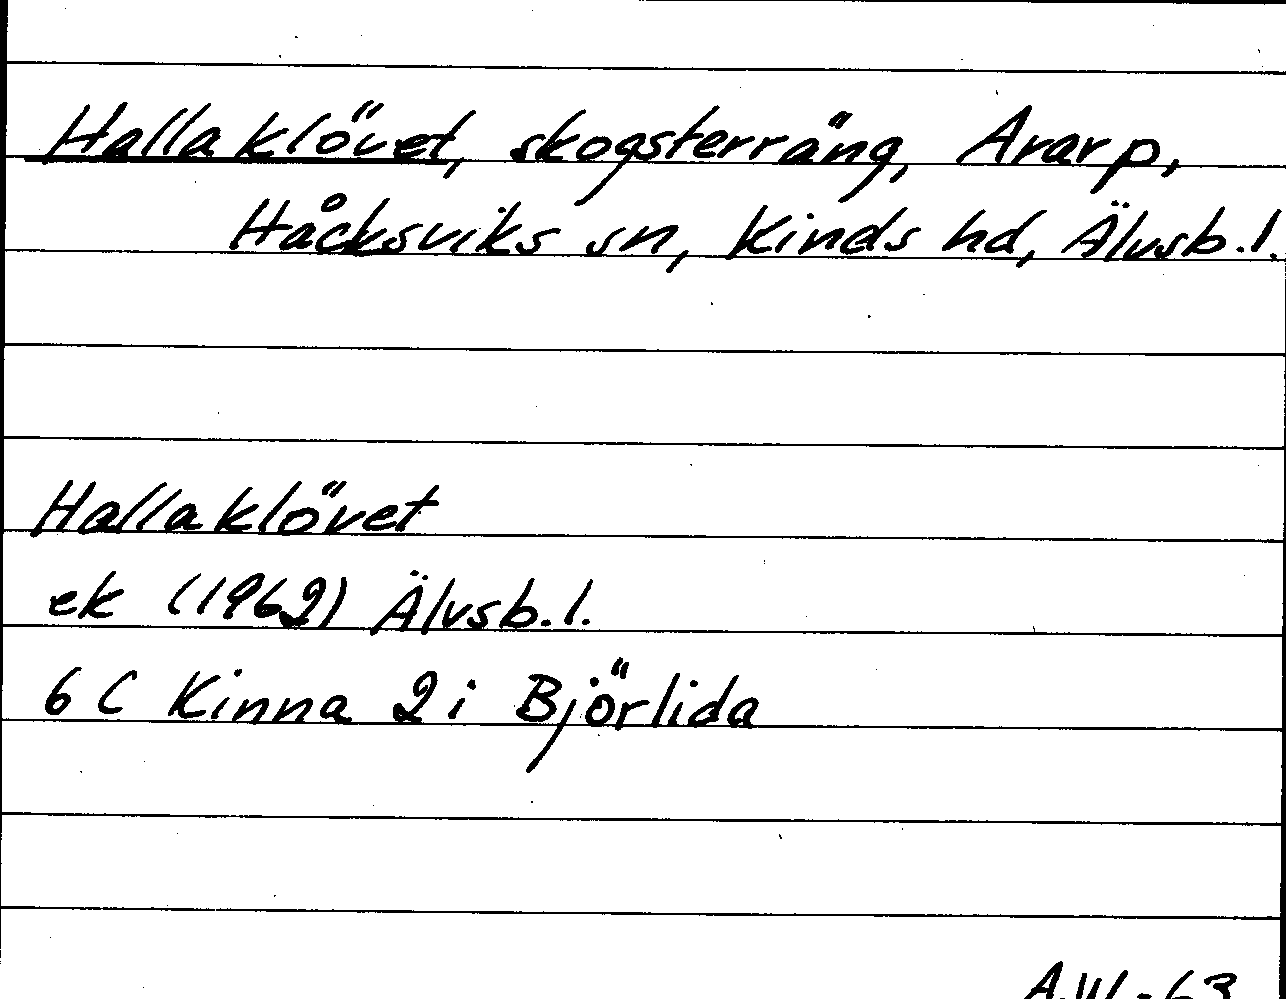 Hallaklövet, skogsterräng, Ararp,
Håcksviks sn, Kinds hd, Älvsb.l.
Hallaklövet
ek (1962) Älvsb.l.
6 C Kinna 2 i Björlida
A.W.-63